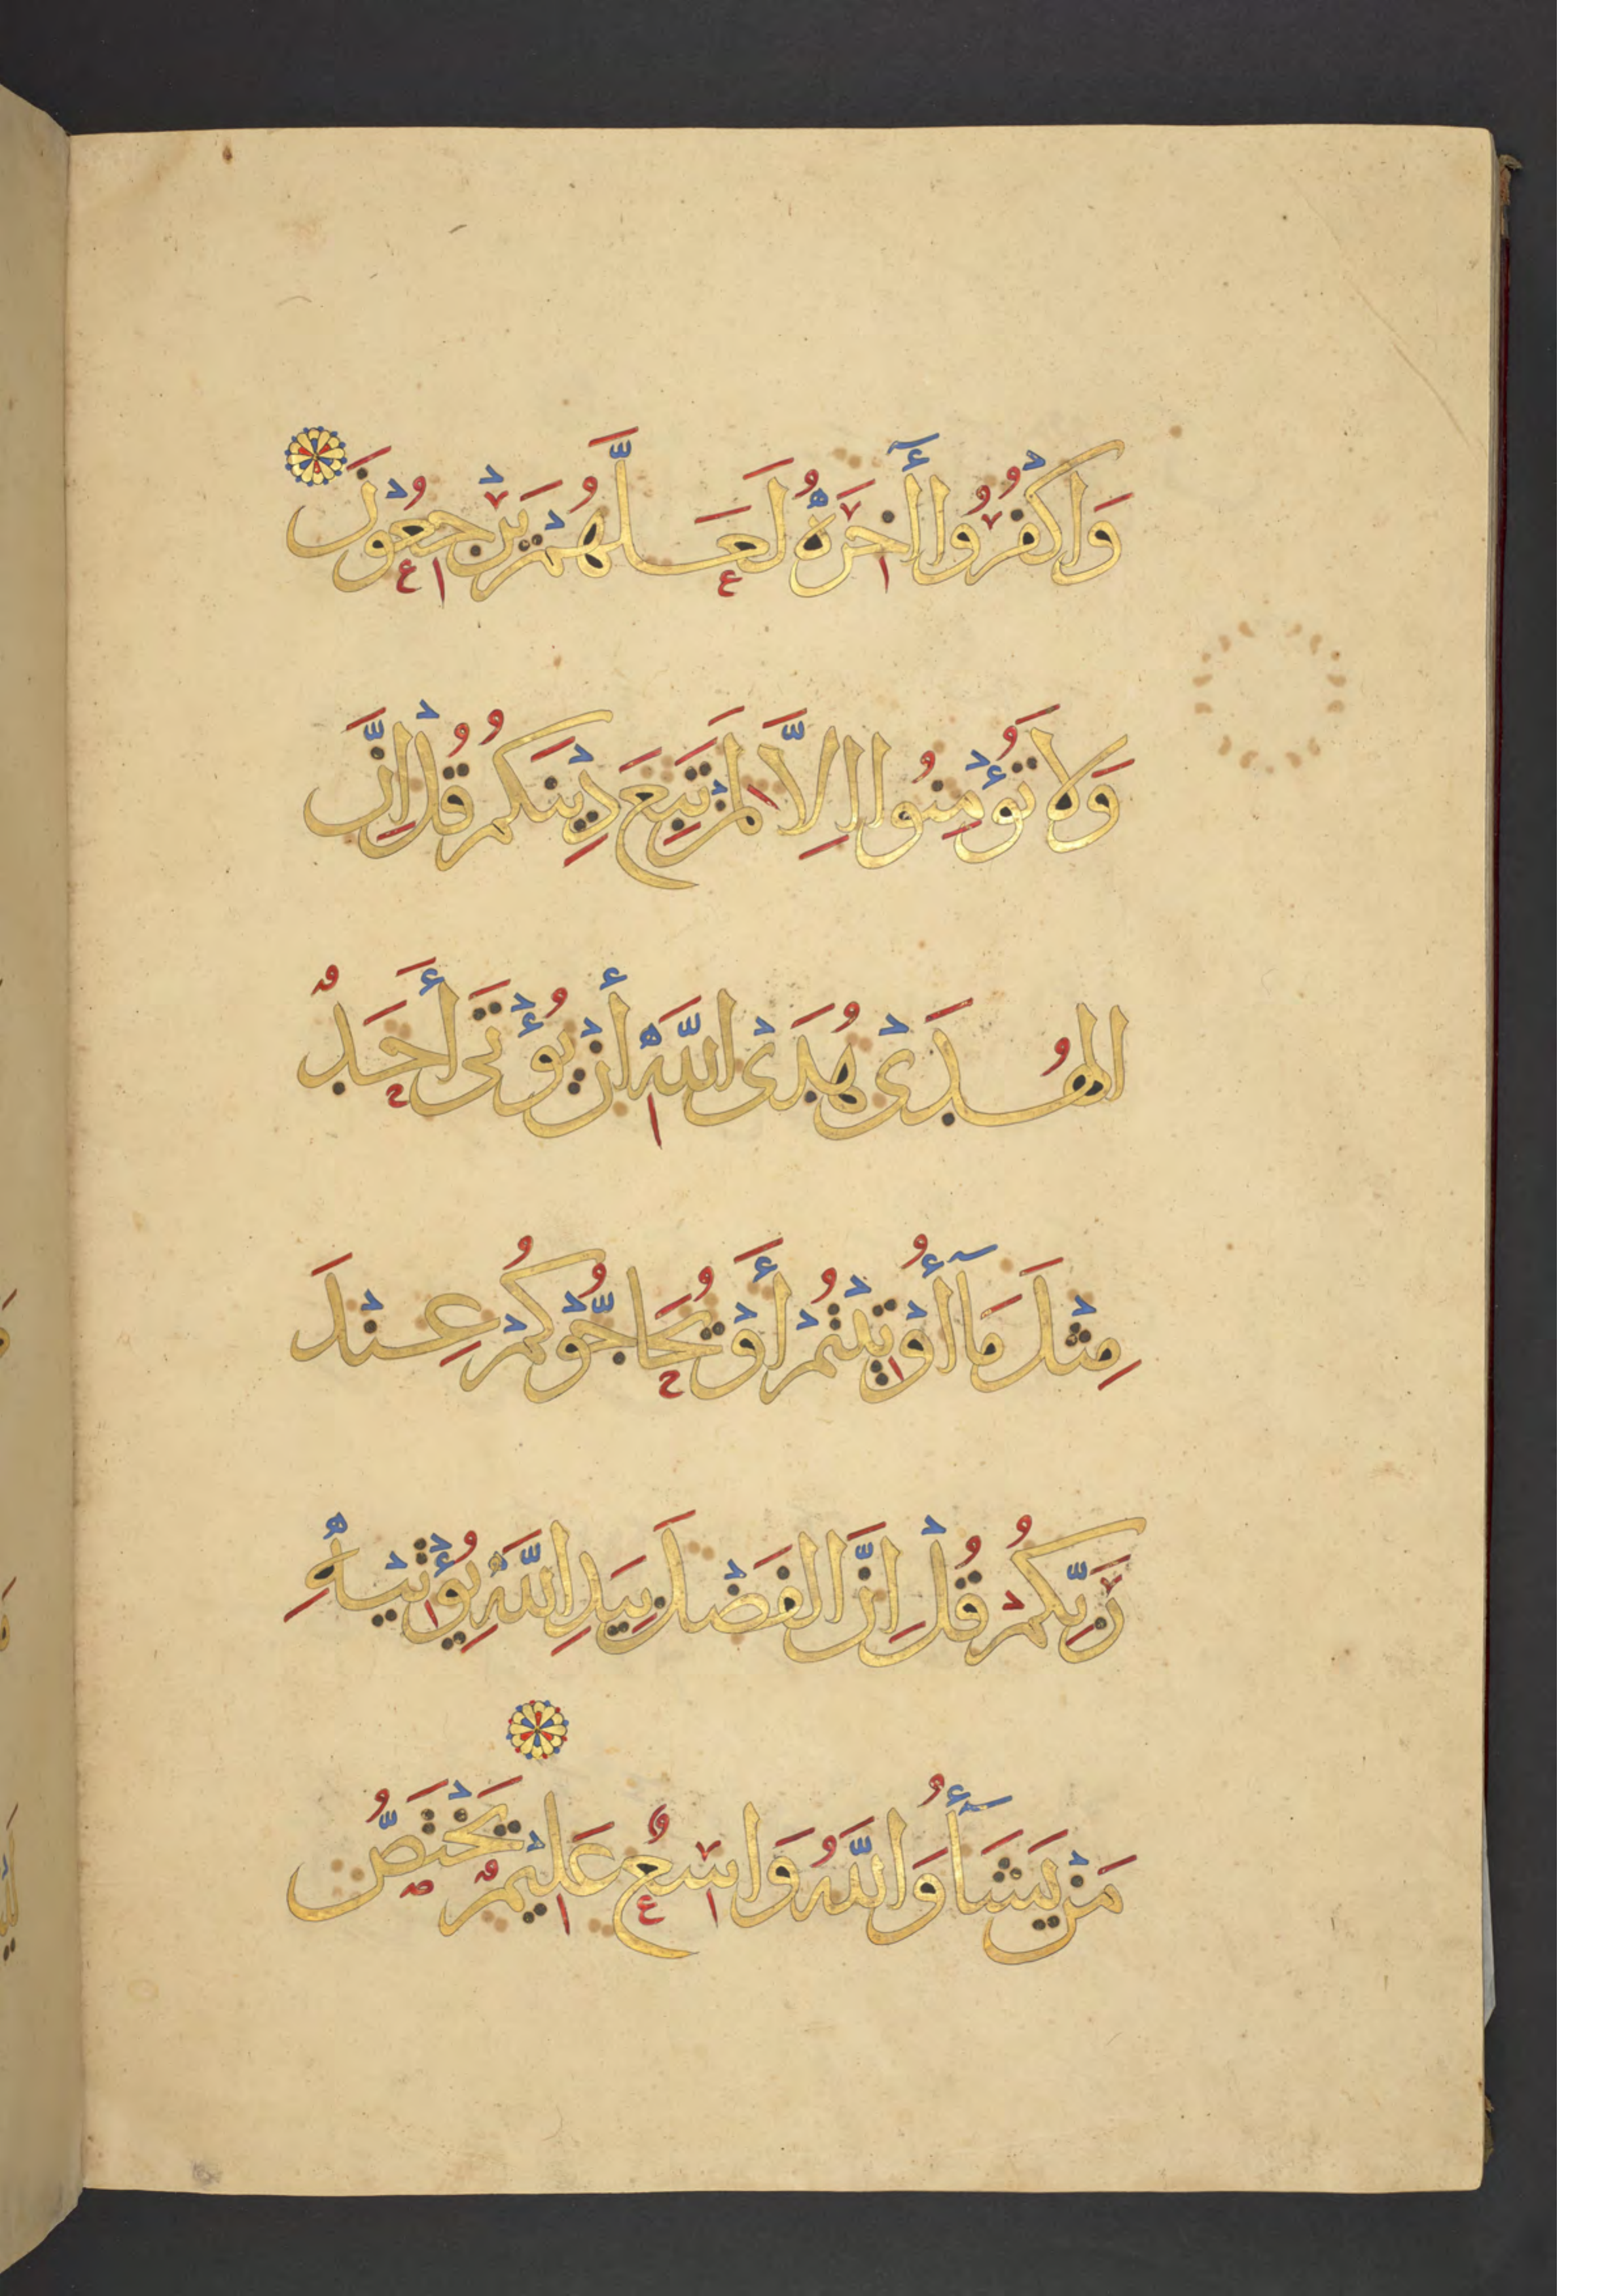 وَاكْفُرُوا أٓخِرَهُ لَعَلَّهُمْ يَرْجِعُونَ
وَلَا تُؤْمِنُوا اِلَّا لِمَنْ تَبِعَ دِيْنَكُمْ قُلْ اِنَّ
الهُدَىْ هُدَىْ اللَّهِ أَنْ يُؤْتَى أَحَدٌ
مِثْلَ مَآ أُوْتِيْتُمْ أَوْ يُحَاجُّوْكُمْ عِنْدَ
رَبِّكُمْ قُلْ اِنَّ الفَضْلَ بِيَدِ اللَّهِ يُؤْتِيْهِ
مَنْ يَشَآءُ وَاللَّهُ وَاسِعٌ عَلِيْمٌ يَخْتَصُّ